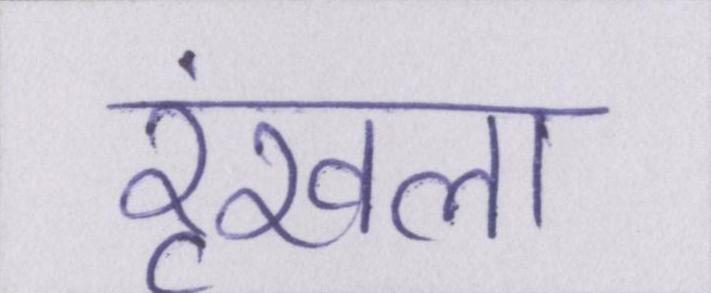 रृंखला